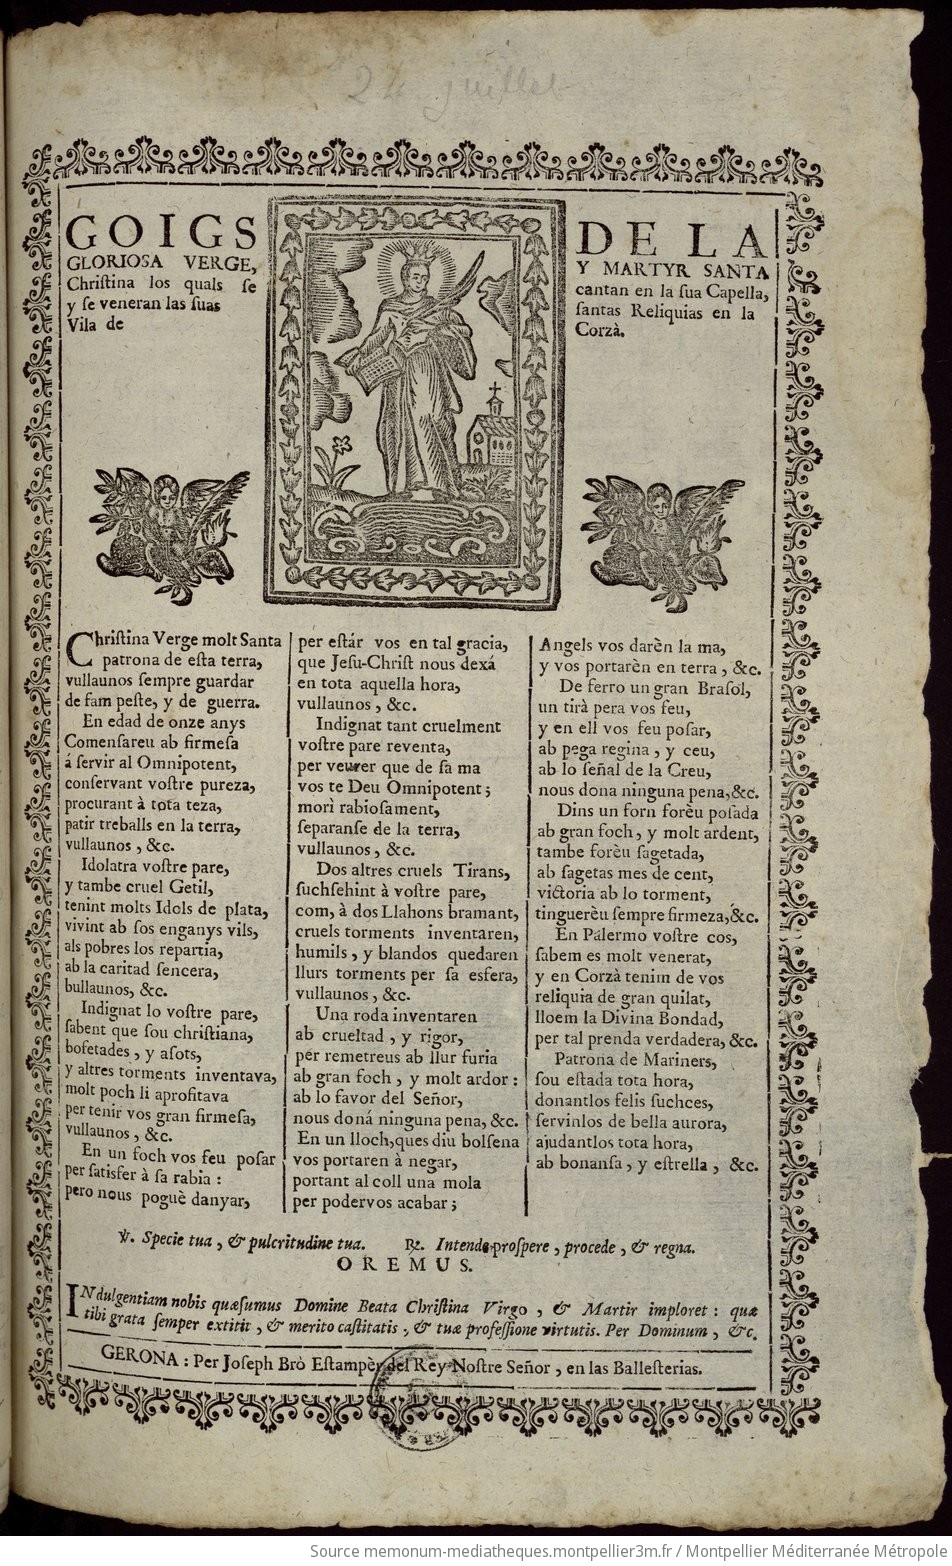 24 juillet
GOIGS DE LA
GLORIOSA VERGE, Y MARTYR SANTA
Chriſtina los quals ſe cantan en la ſua Capella,
y ſe veneran las ſuas ſantas Reliquias en la
Vila de Corzà.
Chriſtina Verge molt Santa
patrona de eſta terra,
vullaunos ſempre guardar
de fam peſte, y de guerra.
En edad de onze anys
Comenſareu ab firmeſa
á ſervir al Omnipotent,
conſervant voſtre pureza,
procurant à tota teza,
patir treballs en la terra,
vullaunos, &c.
Idolatra voſtre pare,
y tambe cruel Getil,
tenint molts Idols de plata,
vivint ab ſos enganys vils,
als pobres los repartia,
ab la caritad ſencera,
bullaunos, &c.
Indignat lo voſtre pare,
ſabent que ſou chriſtiana,
bofetades, y aſots,
y altres torments inventava,
molt poch li aprofitava
per tenir vos gran firmeſa,
vullaunos, &c.
En un foch vos feu poſar
per ſatisfer à ſa rabia :
pero nous poguè danyar,
per eſtár vos en tal gracia,
que Jeſu-Chriſt nous dexá
en tota aquella hora,
vullaunos, &c.
Indignat tant cruelment
voſtre pare reventa,
per veurer que de ſa ma
vos te Deu Omnipotent;
morì rabioſament,
ſeparanſe de la terra,
vullaunos, &c.
Dos altres cruels Tirans,
ſuchſehint à voſtre pare,
com, à dos Llahons bramant,
cruels torments inventaren,
humils, y blandos quedaren
llurs torments per ſa esfera,
vullaunos, &c.
Una roda inventaren
ab crueltad, y rigor,
pèr remetreus ab llur furia
ab gran foch, y molt ardor :
ab lo favor del Señor,
nous doná ninguna pena, &c.
En un lloch,ques diu bolſena
vos portaren à negar,
portant al coll una mola
per podervos acabar;
Angels vos darèn la ma,
y vos portarèn en terra, &c.
De ferro un gran Braſól,
un tirà pera vos feu,
y en ell vos feu poſar,
ab pega regina, y ceu,
ab lo ſeñal de la Creu,
nous dona ninguna pena,&c.
Dins un forn forèu poſada
ab gran foch, y molt ardent,
tambe forèu ſagetada,
ab ſagetas mes de cent,
victoria ab lo torment,
tinguerèu ſempre firmeza,&c.
En Pálermo voſtre cos,
ſabem es molt venerat,
y en Corzà tenim de vos
reliquia de gran quilat,
lloem la Divina Bondad,
per tal prenda verdadera, &c.
Patrona de Mariners,
ſou eſtada tota hora,
donantlos felis ſuchces,
ſervinlos de bella aurora,
ajudantlos tota hora,
ab bonanſa, y eſtrella, &c.
℣. Specie tua, & pulcritudine tua. ℟. Intende proſpere, procede, & regna.
OREMUS.
INdulgentiam nobis quæſumus Domine Beata Chriſtina Virgo, & Martir imploret: quæ
tibi grata ſemper extitit, & merito caſtitatis, & tuæ profeſſione virtutis. Per Dominum, &c.
GERONA : Per Joſeph Brò Eſtampèr del Rey Noſtre Señor, en las Balleſterias.
Source memonum-mediatheques.montpellier3m.fr / Montpellier Méditerranée Métropole